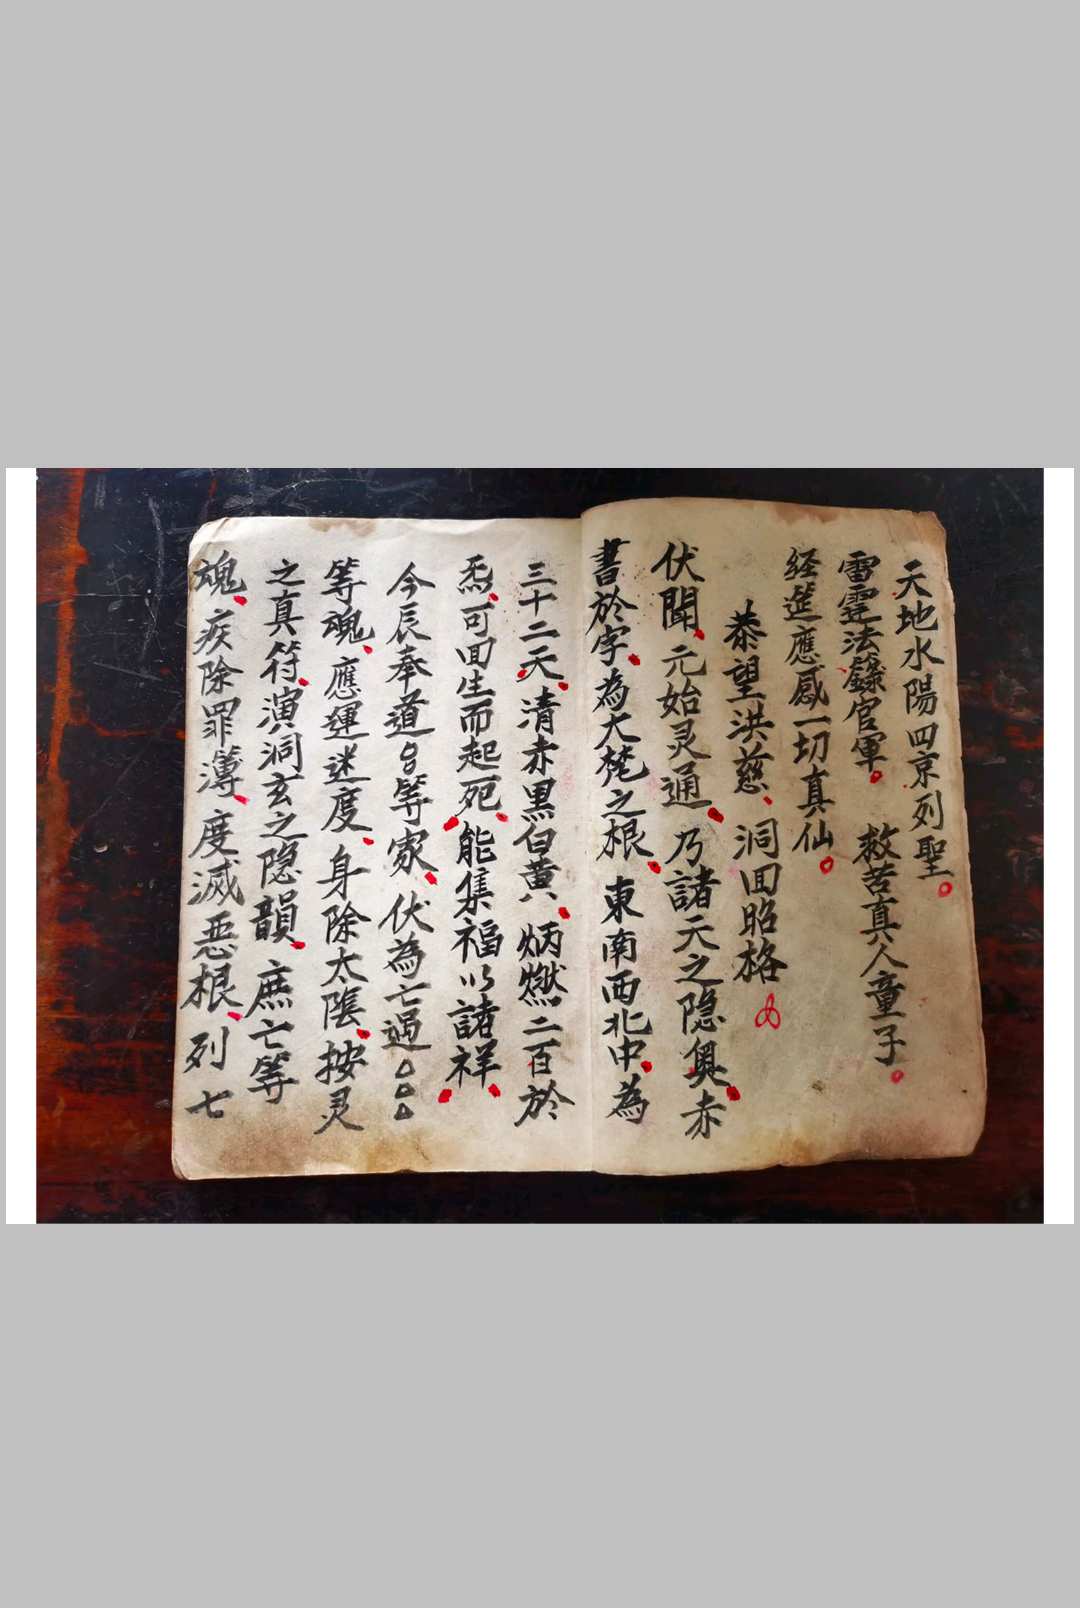 天地水陽四京列聖。
雷霆法籙官軍。 救苦真人童子。
経筵應感一切真仙。
恭望洪慈、洞回昭格
伏聞、元始灵通、乃諸天之隠奥、赤
書於字、為大梵之根、東南西北中、為
三十二天、清赤黒白黄、炳燃二百於
炁、可回生而起死、能集福以諸祥、
今辰奉道呂等家、伏為亡過△△△
等魂、應運迷度、身除太陰、按灵
之真符、演洞玄之隠韻、庶亡等
魂、疾除罪薄、度滅惡根、列七